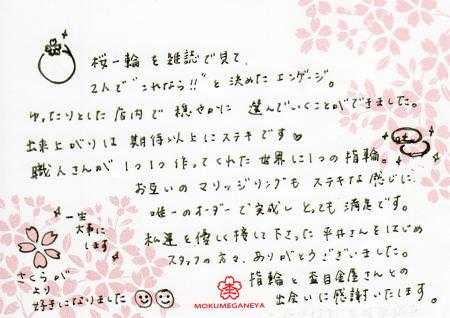 桜一輪を雑誌で見て、
2人で"これなら!!"と決めたエンゲージ。
ゆったりとした店内で穏やかに選んでいくことができました。
出来上がりは期待以上にステキです♡
職人さんが1つ1つ作ってくれた世界に1つの指輪。
お互いのマリッジリングもステキな感じに、
唯一のオーダーで完成しとっても満足です。
私達を優しく接して下さった平井さんをはじめ
スタッフの方々、ありがとうございました。
指輪と杢目金屋さんとの
出会いに感謝いたします。
一生
大事に
します
さくらが
より
好きになりました
MOKUMEGANEYA